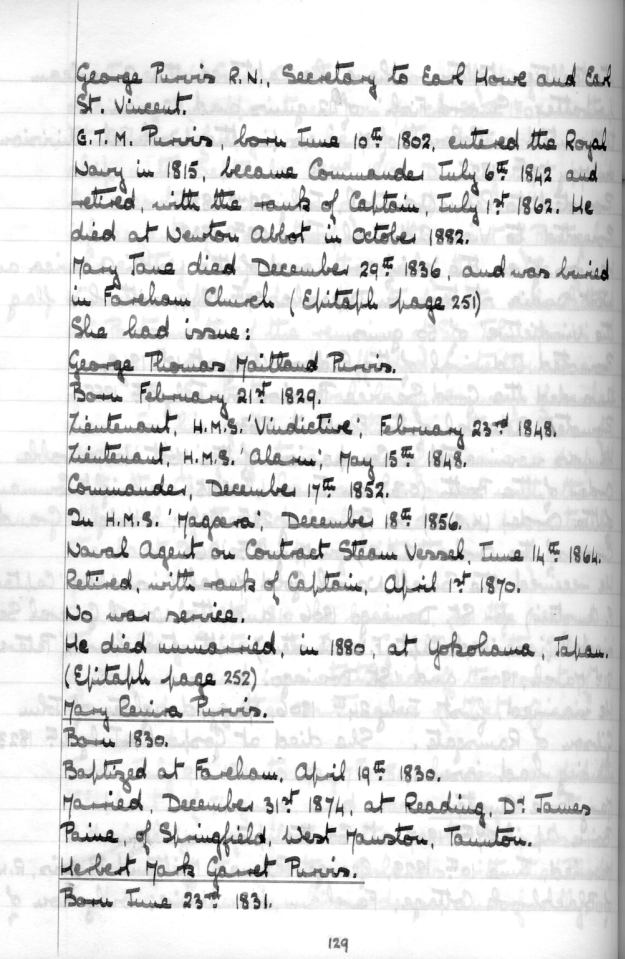 George Purvis R.N., Secretary to Earl Howe and Earl
St. Vincent.
G.T.M. Purvis, born June 10th 1802, entered the Royal
Navy in 1815, became Commander July 6th 1842 and
retired, with the rank of Captain, July 1st 1862. He
died at Newton Abbot in October 1882.
Mary Jane died December 29th 1836, and was buried
in Fareham Church (Epitaph page 251)
She had issue:
George Thomas Maitland Purvis.
Born February 21st 1829.
Lieutenant, H.M.S. 'Vindictive', February 23rd 1848.
Lieutenant, H.M.S. 'Alarm', May 15th 1848.
Commander, December 17th 1852.
In H.M.S. 'Magæra', December 18th 1856.
Naval Agent on Contract Steam Vessel, June 14th 1864.
Retired, with rank of Captain, April 1st 1870.
No war service.
He died unmarried, in 1880, at Yokohama, Japan.
(Epitaph page 252)
Mary Renira Purvis.
Born 1830.
Baptized at Fareham, April 19th 1830.
Married, December 31st 1874, at Reading, Dr James
Paine, of Springfield, West Mauston, Taunton.
Herbert Mark Garret Purvis.
Born June 23rd 1831.
129